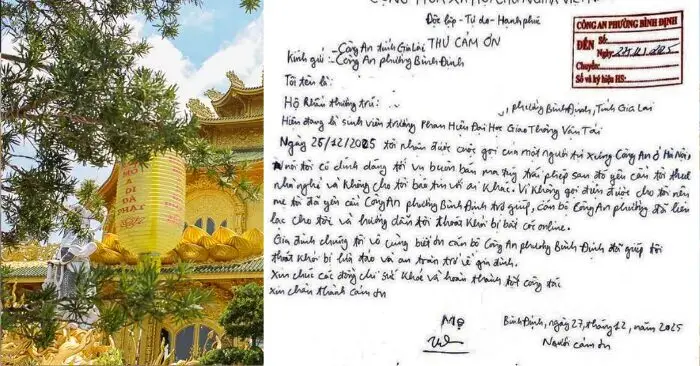 NAM MÔ
A
DI
ĐÀ
PHẬT
CỘNG HÒA XÃ HỘI CHỦ NGHĨA VIỆT
Độc lập - Tự do - Hạnh phúc
THƯ CẢM ƠN
CÔNG AN PHƯỜNG BÌNH ĐỊNH
ĐẾN Số:
Ngày:
Chuyển:
Số và ký hiệu HS:
Kính gửi: - Công An tỉnh Gia Lai
- Công An phường Bình Định
Tôi tên là:
Hộ khẩu thường trú: , phường Bình Định, Tỉnh Gia Lai
Hiện đang là sinh viên trường Phân Hiệu Đại Học Giao Thông Vận Tải
Ngày 25/12/2025 tôi nhận được cuộc gọi của một người tự xưng Công An ở Hà Nội
nói tôi có dính dáng tới vụ buôn bán ma túy trái phép sau đó yêu cầu tôi thuê
nhà nghỉ và không cho tôi báo tin với ai khác. Vì không gọi điện được cho tôi nên
mẹ tôi đã yêu cầu Công An phường Bình Định trợ giúp, cán bộ Công An phường đã liên
lạc cho tôi và hướng dẫn tôi thoát khỏi bị bắt cóc online.
Gia đình chúng tôi vô cùng biết ơn cán bộ Công An phường Bình Định đã giúp tôi
thoát khỏi bị lừa đảo và an toàn trở về gia đình.
Xin chúc các đồng chí sức khoẻ và hoàn thành tốt công tác
xin chân thành cảm ơn
Mẹ
Bình Định, ngày 27, tháng 12, năm 2025
Người cảm ơn